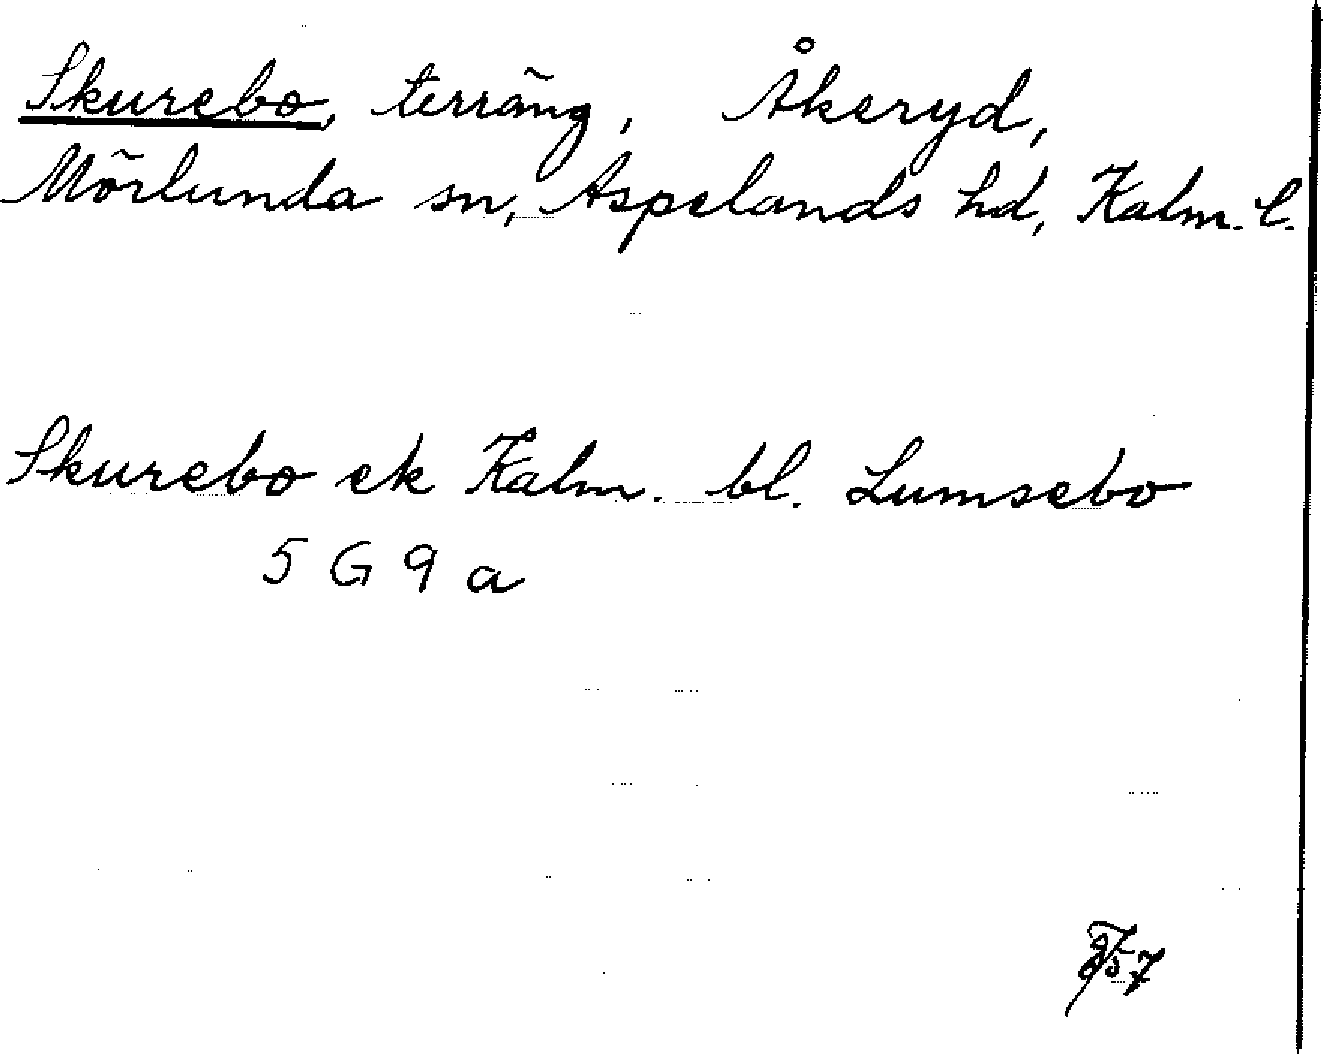 Skurebo, terräng, Åkeryd,
Mörlunda sn, Aspelands hd, Kalm. l.
Skurebo ek Kalm. bl. Lumsebo
5 G 9 a